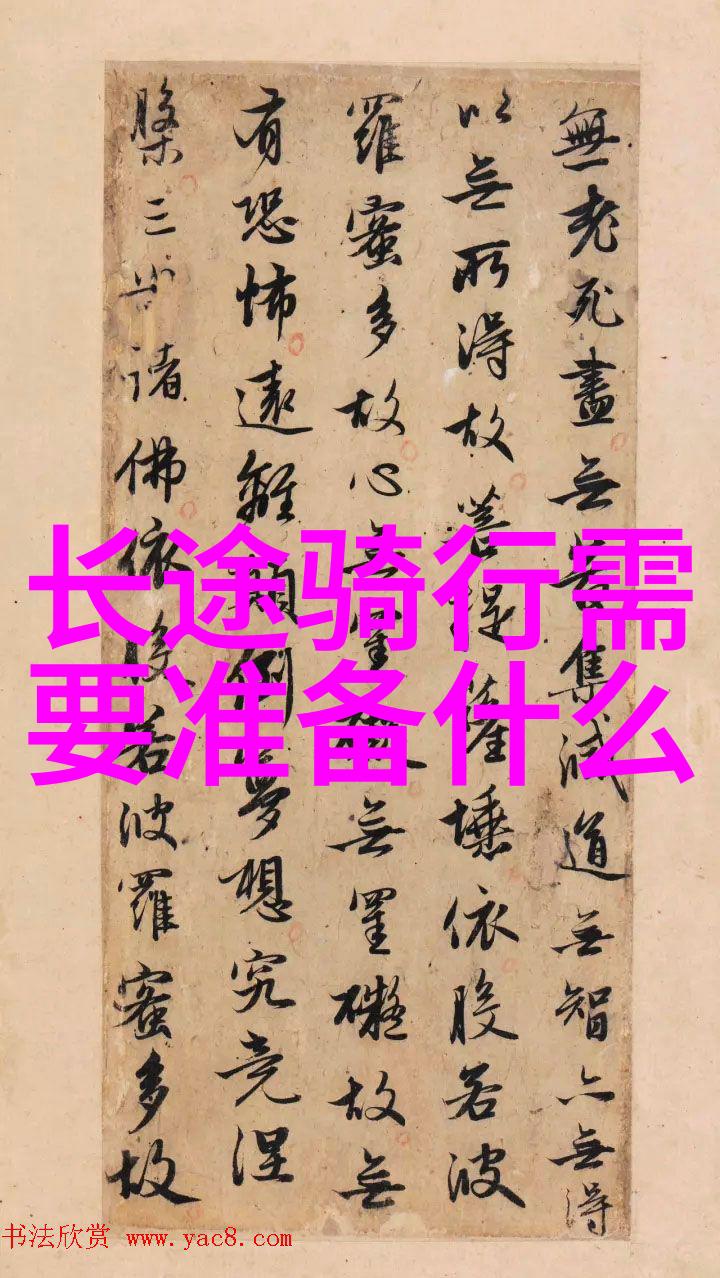 長途骑行需
要准备什么
無老死盡無苦集滅道無智亦無得
以無所得故菩提薩埵依般若波
羅蜜多故心無罣礙無罣礙故無
有恐怖遠離顛倒夢想究竟涅
槃三世諸佛依般若波羅蜜多故
书法欣赏 www.yac8.com